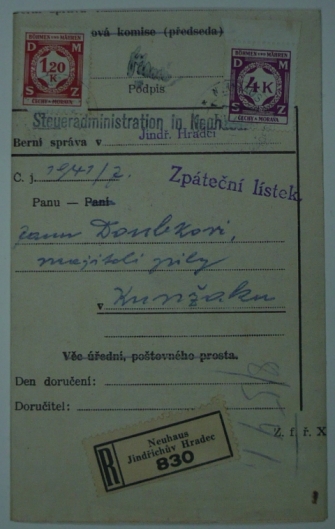 ová komise (předseda)
BÖHMEN UND MÄHREN
D M
1.20
K
S Z
ČECHY A MORAVA
BÖHMEN UND MÄHREN
D M
4K
S Z
ČECHY A MORAVA
Podpis
Steueradministration in Neuhaus
Berní správa v Jindř. Hradec
Č. j. 1941/7.
Zpáteční lístek
Panu — Paní
Janu Doubkovi,
majiteli pily
v Kunžaku
Věc úřední, poštovného prosta.
Den doručení:
Doručitel:
Z. f. ř. X
R
Neuhaus
Jindřichův Hradec
830